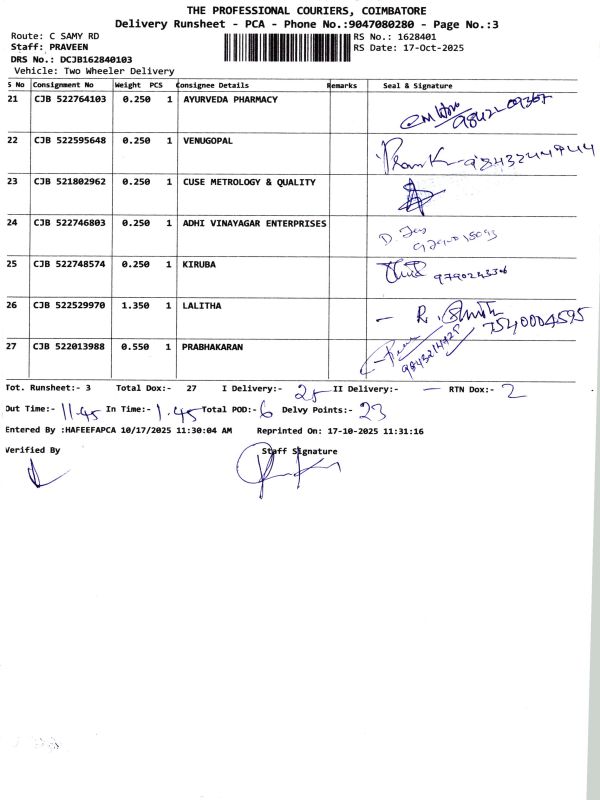 THE PROFESSIONAL COURIERS, COIMBATORE
Delivery Runsheet - PCA - Phone No.:9047080280 - Page No.:3
Route: C SAMY RD
Staff: PRAVEEN
DRS No.: DCJB162840103
Vehicle: Two Wheeler Delivery
RS No.: 1628401
RS Date: 17-Oct-2025
S No Consignment No Weight PCS Consignee Details Remarks Seal & Signature
21 CJB 522764103 0.250 1 AYURVEDA PHARMACY
22 CJB 522595648 0.250 1 VENUGOPAL
23 CJB 521802962 0.250 1 CUSE METROLOGY & QUALITY
24 CJB 522746803 0.250 1 ADHI VINAYAGAR ENTERPRISES
25 CJB 522748574 0.250 1 KIRUBA
26 CJB 522529970 1.350 1 LALITHA 7540004595
27 CJB 522013988 0.550 1 PRABHAKARAN
Tot. Runsheet:- 3 Total Dox:- 27 I Delivery:- 25 II Delivery:- — RTN Dox:- 2
Out Time:- 11.45 In Time:- 1.45 Total POD:- 6 Delvy Points:- 23
Entered By :HAFEEFAPCA 10/17/2025 11:30:04 AM Reprinted On: 17-10-2025 11:31:16
Verified By Staff Signature